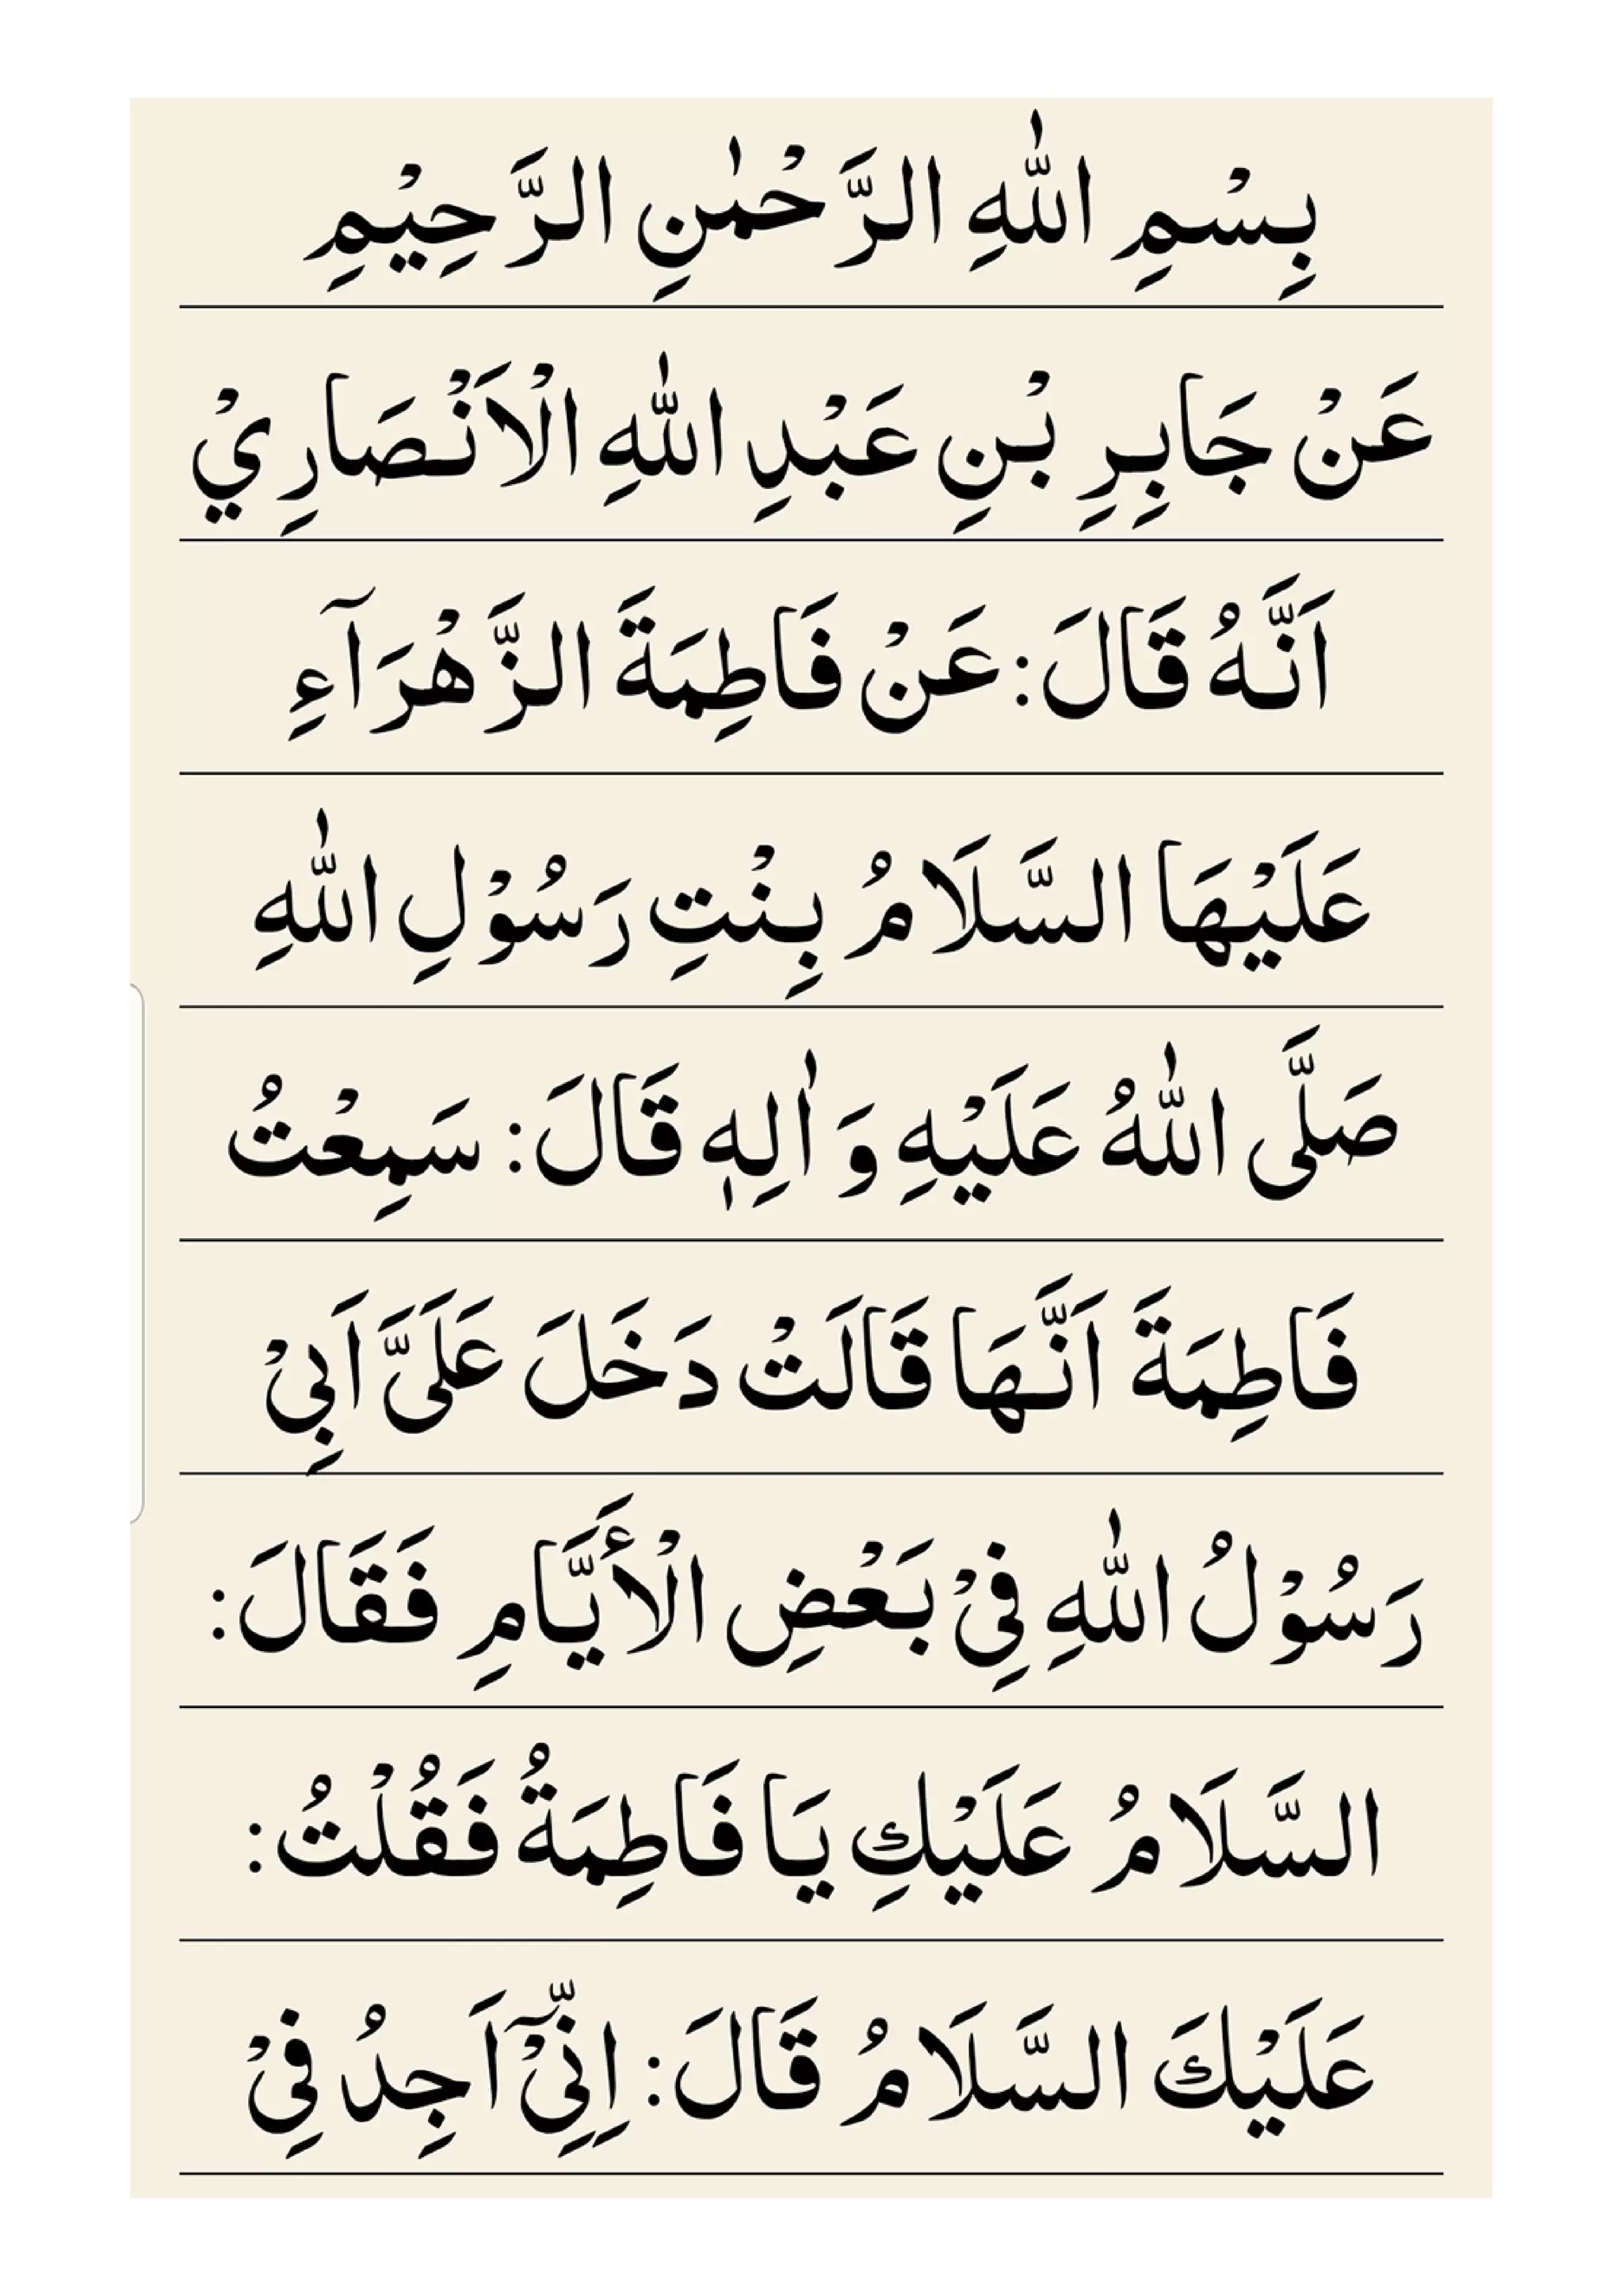 بِسْمِ اللّٰهِ الرَّحْمٰنِ الرَّحِيْمِ
عَنْ جَابِرِ بْنِ عَبْدِ اللّٰهِ الْاَنْصَارِيْ
اَنَّهُ قَالَ: عَنْ فَاطِمَةَ الزَّهْرَآءِ
عَلَيْهَا السَّلَامُ بِنْتِ رَسُوْلِ اللّٰهِ
صَلَّى اللّٰهُ عَلَيْهِ وَ اٰلِهٖ قَالَ: سَمِعْتُ
فَاطِمَةَ اَنَّهَا قَالَتْ دَخَلَ عَلَىَّ اَبِيْ
رَسُوْلُ اللّٰهِ فِيْ بَعْضِ الْأَيَّامِ فَقَالَ:
السَّلَامُ عَلَيْكِ يَا فَاطِمَةُ فَقُلْتُ:
عَلَيْكَ السَّلَامُ قَالَ: اِنِّيْٓ اَجِدُ فِيْ